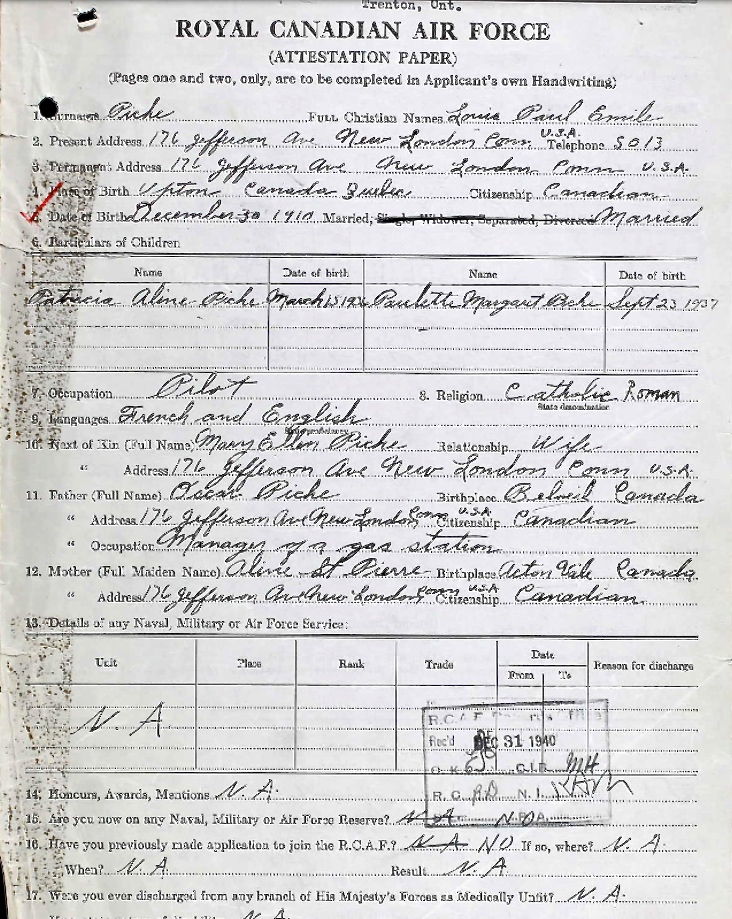 Trenton, Ont.
ROYAL CANADIAN AIR FORCE
(ATTESTATION PAPER)
(Pages one and two, only, are to be completed in Applicant's own Handwriting)
1. Surname Piche Full Christian Names Louis Paul Emile
2. Present Address 176 Jefferson Ave New London Conn U.S.A. Telephone 5013
3. Permanent Address 176 Jefferson Ave New London Conn U.S.A.
4. Place of Birth Upton Canada Quebec Citizenship Canadian
5. Date of Birth December 30 1910 Married; Single, Widower, Separated, Divorced Married
6. Particulars of Children
Name Date of birth Name Date of birth
Patricia Aline Piche March 15 Paulette Margaret Piche Sept 23 1937
7. Occupation Pilot 8. Religion Catholic Roman
State denomination
9. Languages French and English
10. Next of Kin (Full Name) Mary Ellen Piche Relationship Wife
" Address 176 Jefferson Ave New London Conn U.S.A.
11. Father (Full Name) Oscar Piche Birthplace Beloeil Canada
" Address 176 Jefferson Ave New London Conn U.S.A. Citizenship Canadian
" Occupation Manager of a gas station
12. Mother (Full Maiden Name) Alice St Pierre Birthplace Acton Vale Canada
" Address 176 Jefferson Ave New London Conn U.S.A. Citizenship Canadian
13. Details of any Naval, Military or Air Force Service:
Unit Place Rank Trade Date Reason for discharge
From To
N A
R.C.A.F. Records
Rec'd DEC 31 1940
O.K. C.I.B. MH
R.C. N.I.
N.R.A.
14. Honours, Awards, Mentions N. A.
15. Are you now on any Naval, Military or Air Force Reserve? N A NO
16. Have you previously made application to join the R.C.A.F.? N A NO If so, where? N. A.
When? N. A Result N. A
17. Were you ever discharged from any branch of His Majesty's Forces as Medically Unfit? N. A.
N. A.